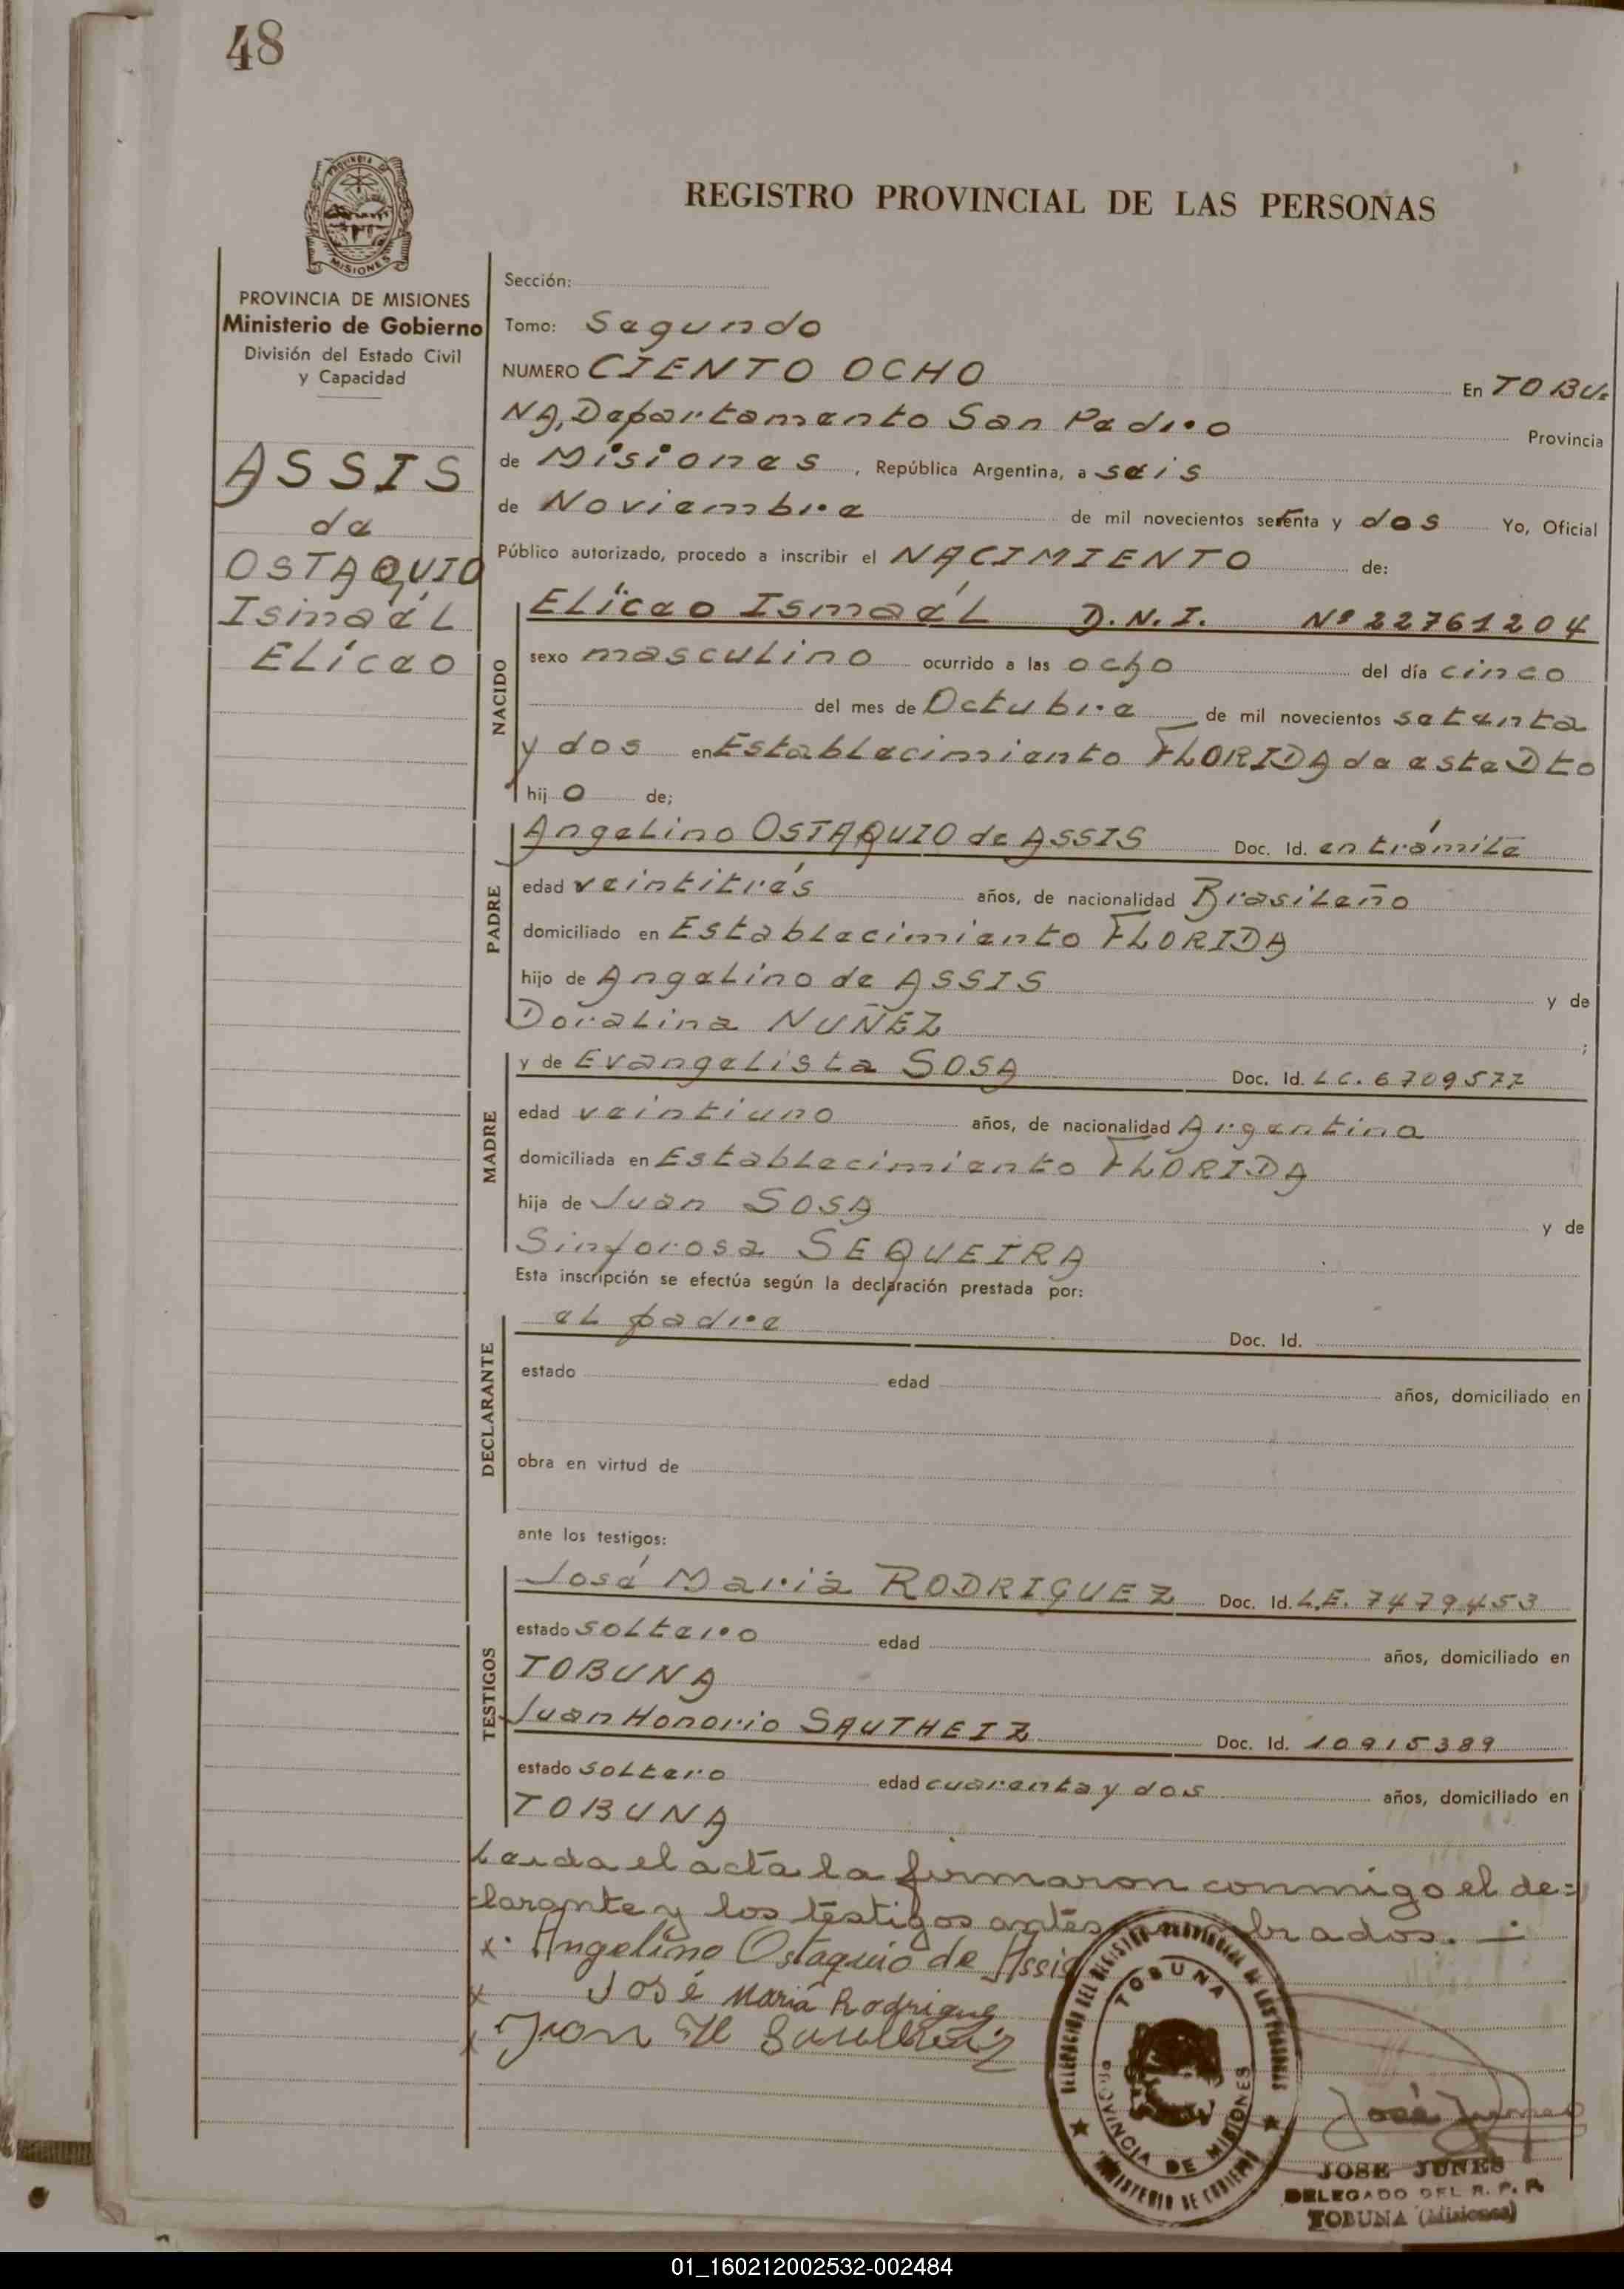 48
PROVINCIA DE
MISIONES
PROVINCIA DE MISIONES
Ministerio de Gobierno
División del Estado Civil
y Capacidad
ASSIS
de
OSTAQUIO
Ismaél
ELiceo
REGISTRO PROVINCIAL DE LAS PERSONAS
Sección:
Tomo: Segundo
NUMERO CIENTO OCHO En TOBU
NA, Departamento San Pedro Provincia
de Misiones, República Argentina, a seis
de Noviembre de mil novecientos setenta y dos Yo, Oficial
Público autorizado, procedo a inscribir el NACIMIENTO de:
NACIDO
ELiceo Ismaél D.N.I. Nº 22761204
sexo masculino ocurrido a las ocho del día cinco
del mes de Octubre de mil novecientos setenta
y dos en Establecimiento FLORIDA de este Dto
hij o de;
PADRE
Angelino OSTAQUIO de ASSIS Doc. Id. en trámite
edad veintitrés años, de nacionalidad Brasileño
domiciliado en Establecimiento FLORIDA
hijo de Angelino de ASSIS y de
Doralina NUÑEZ ;
MADRE
y de Evangelista SOSA Doc. Id. LC. 6709577
edad veintiuno años, de nacionalidad Argentina
domiciliada en Establecimiento FLORIDA
hija de Juan SOSA y de
Sinforosa SEQUEIRA
Esta inscripción se efectúa según la declaración prestada por:
DECLARANTE
el padre Doc. Id.
estado edad años, domiciliado en
obra en virtud de
ante los testigos:
TESTIGOS
José María RODRIGUEZ Doc. Id. L.E. 7479453
estado soltero edad años, domiciliado en
TOBUNA
Juan Honorio SAUTHEIZ Doc. Id. 10915389
estado soltero edad cuarenta y dos años, domiciliado en
TOBUNA
Leida el acta la firmaron conmigo el de=
clarante y los testigos antes brados. —
x Angelino Ostaquio de Assis
x José Maria Rodrigue
x Juan H
DELEGACION DEL REGISTRO PROVINCIAL DE LAS PERSONAS
TOBUNA
PROVINCIA DE MISIONES
MINISTERIO DE GOBIERNO
José Junes
JOSE JUNES
DELEGADO DEL R. P. P.
TOBUNA (Misiones)
01_160212002532-002484